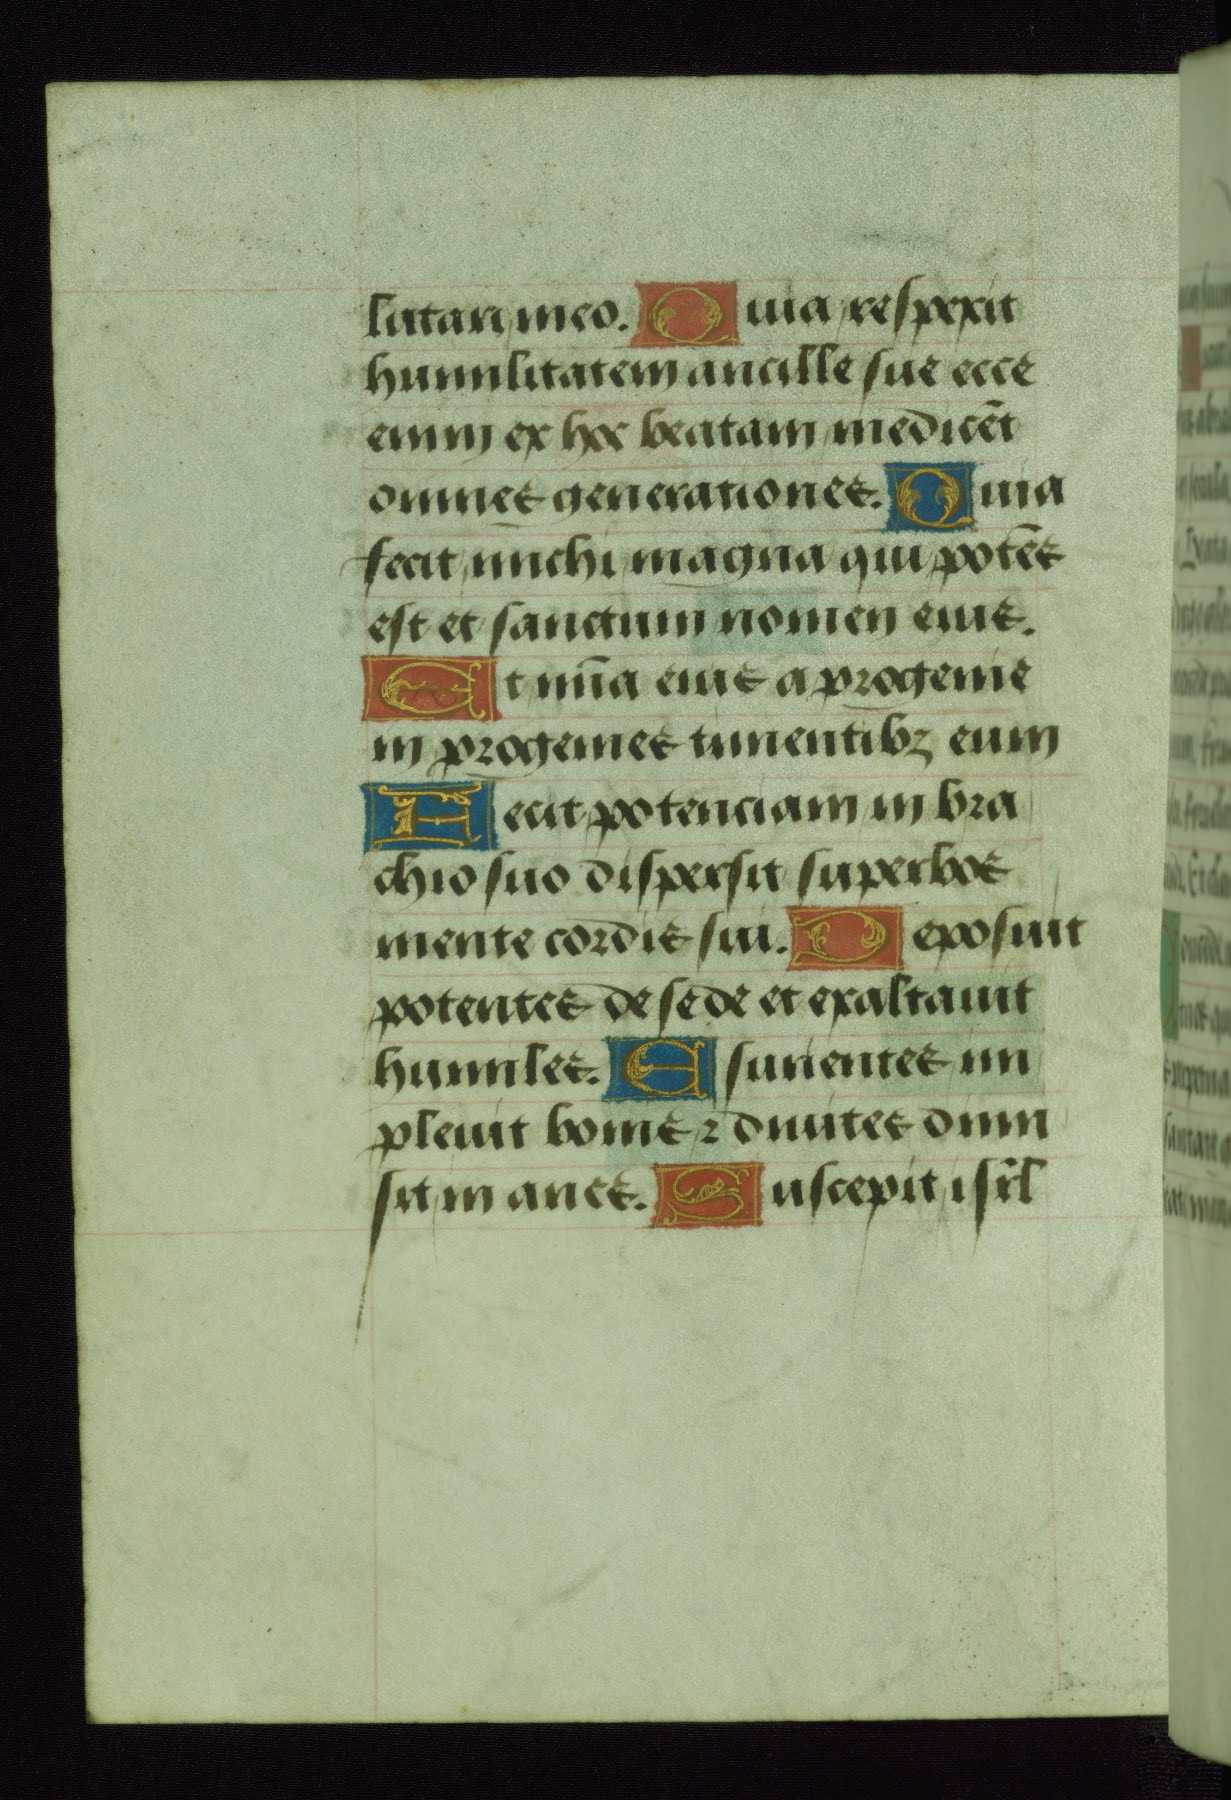 lutari meo. Quia respexit
humilitatem ancille sue ecce
enim ex hoc beatam me dicēt
omnes generationes. Quia
fecit michi magna qui potēs
est et sanctum nomen eius.
Et mīa eius a progenie
in progenies timentibꝫ eum
Fecit potenciam in bra
chio suo dispersit superbos
mente cordis sui. Deposuit
potentes de sede et exaltauit
humiles. Esurientes im
pleuit bonis ⁊ diuites dimi
sit inanes. Suscepit isr̄l